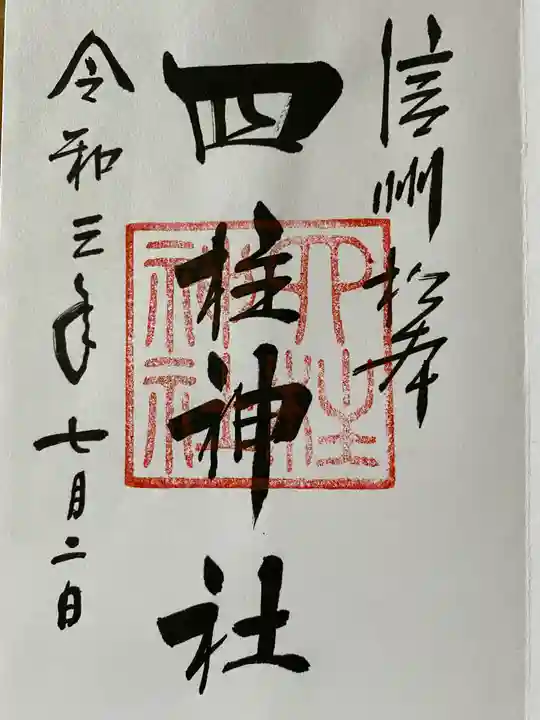 信州松本
四柱神社
四柱神社
令和三年七月二日